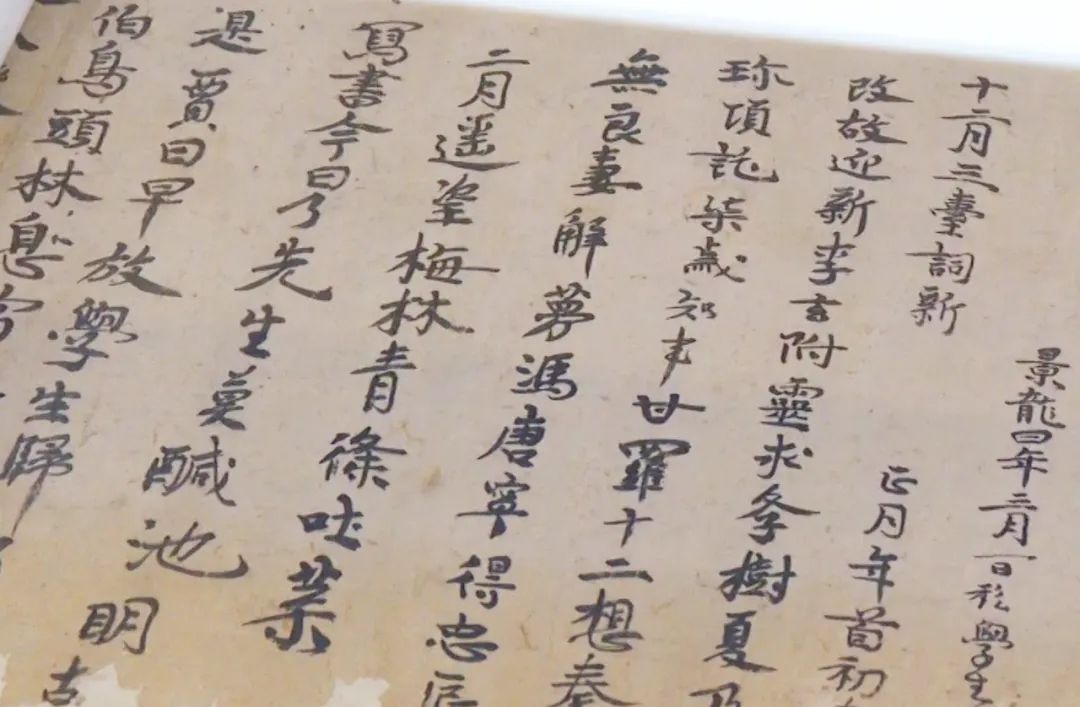 景龍四年三月一日私學生
十二月三臺詞新正月年首初
改故迎新李玄附靈求學樹夏乃
珎項託柒歲知事甘羅十二想秦
無良妻解夢馮唐寧得忠臣
二月遥望梅林青條吐葉
寫書今日了先生莫醎池明古
是賈日早放學生歸
伯鳥頭林息宿